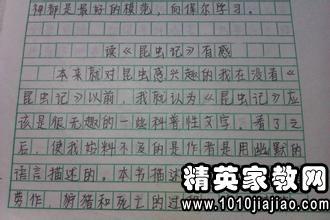 神都是最好的模范，向保尔学习。
读《昆虫记》有感
本来就对昆虫感兴趣的我在没看《
昆虫记》以前，我就认为《昆虫记》应
该是很无趣的一些科普性文字。看了之
后，使我始料不及的是作者是用幽默的
语言描述的。本书描述
劳作，狩猎和死亡的过
精英家教网
www.1010jiajiao.com